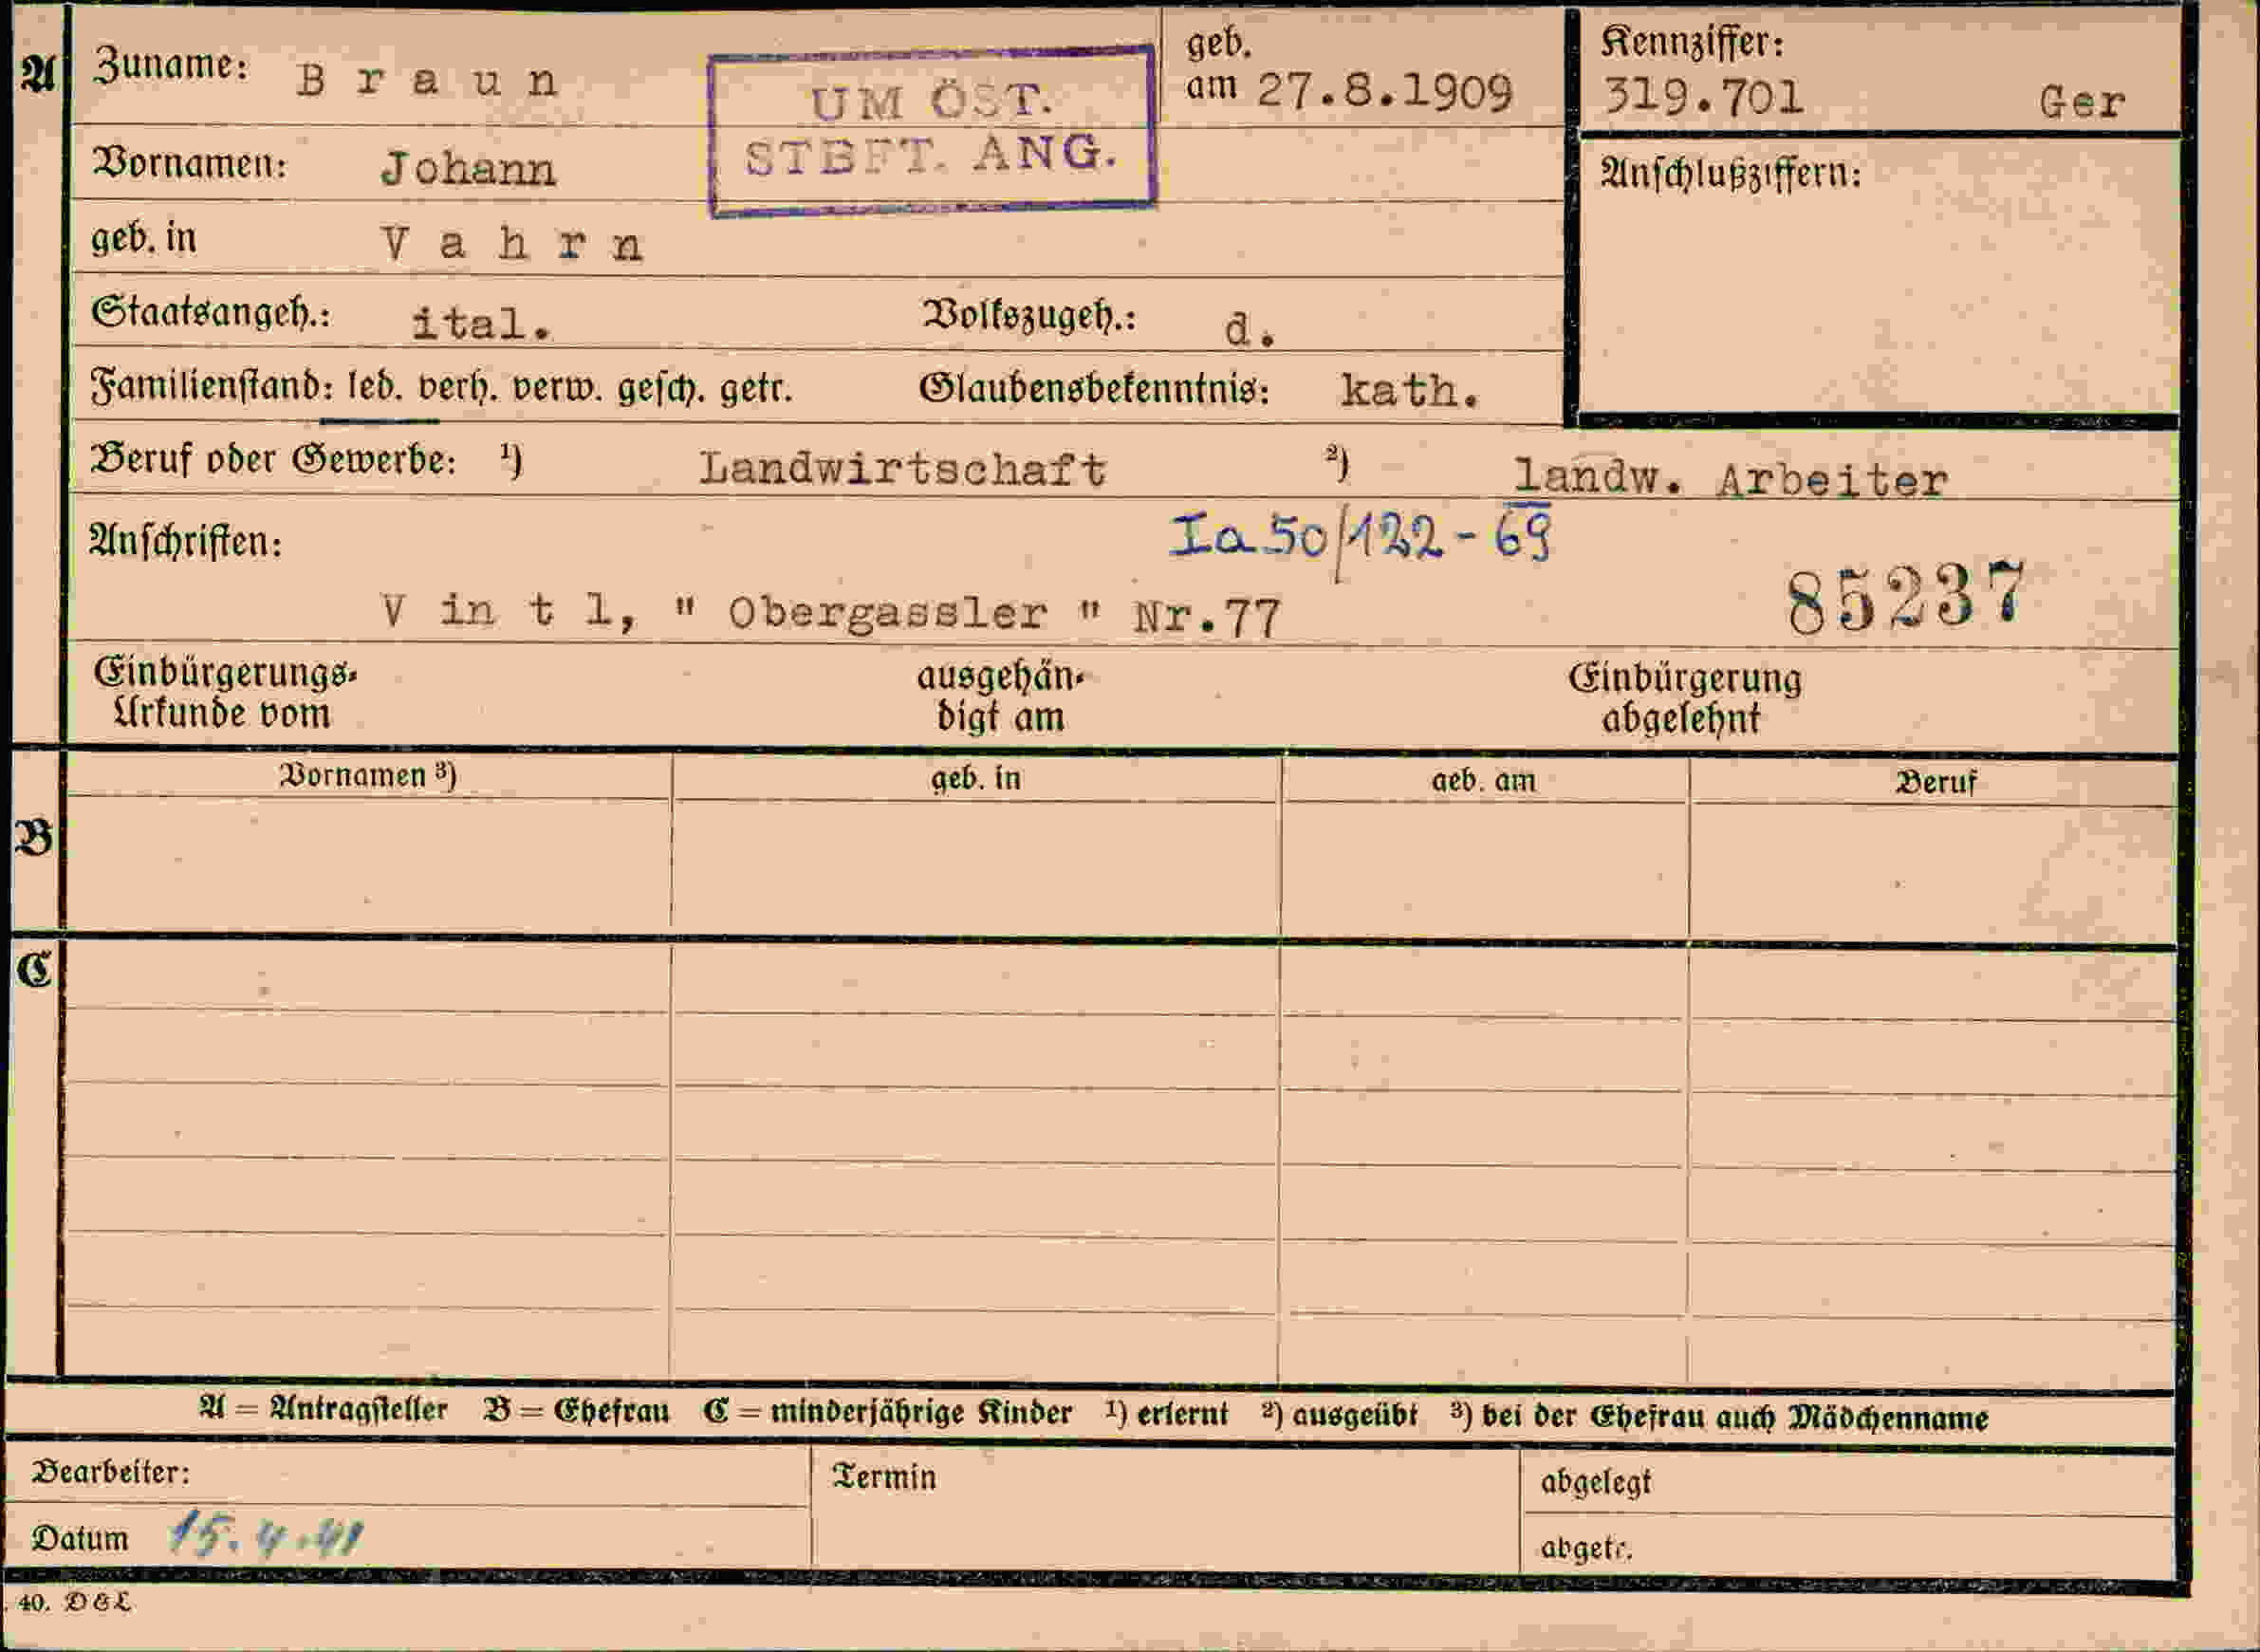 A Zuname: B r a u n
UM ÖST.
STBFT. ANG.
geb.
am 27.8.1909
Kennziffer:
319.701 Ger
Vornamen: Johann
Anschlußziffern:
geb. in V a h r n
Staatsangeh.: ital. Volkszugeh.: d.
Familienstand: led. verh. verw. gesch. getr. Glaubensbekenntnis: kath.
Beruf oder Gewerbe: ¹) Landwirtschaft ²) landw. Arbeiter
Anschriften: Ia 50/122-69
V in t l, " Obergassler " Nr.77 85237
Einbürgerungs-
Urkunde vom
ausgehän-
digt am
Einbürgerung
abgelehnt
B
Vornamen ³) geb. in geb. am Beruf
C
A = Antragsteller B = Ehefrau C = minderjährige Kinder ¹) erlernt ²) ausgeübt ³) bei der Ehefrau auch Mädchenname
Bearbeiter: Termin abgelegt
Datum 15.4.41 abgetr.
. 40. D & L